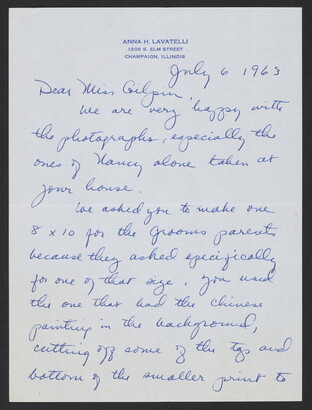 ANNA H. LAVATELLI
1206 S. ELM STREET
CHAMPAIGN, ILLINOIS
July 6 1963
Dear Miss Gilpin,
We are very happy with
the photographs, especially the
ones of Nancy alone taken at
your house.
We asked you to make one
8 x 10 for the grooms parents
because they asked specifically
for one of that size. You used
the one that had the Chinese
painting in the background,
cutting off some of the top and
bottom of the smaller print to